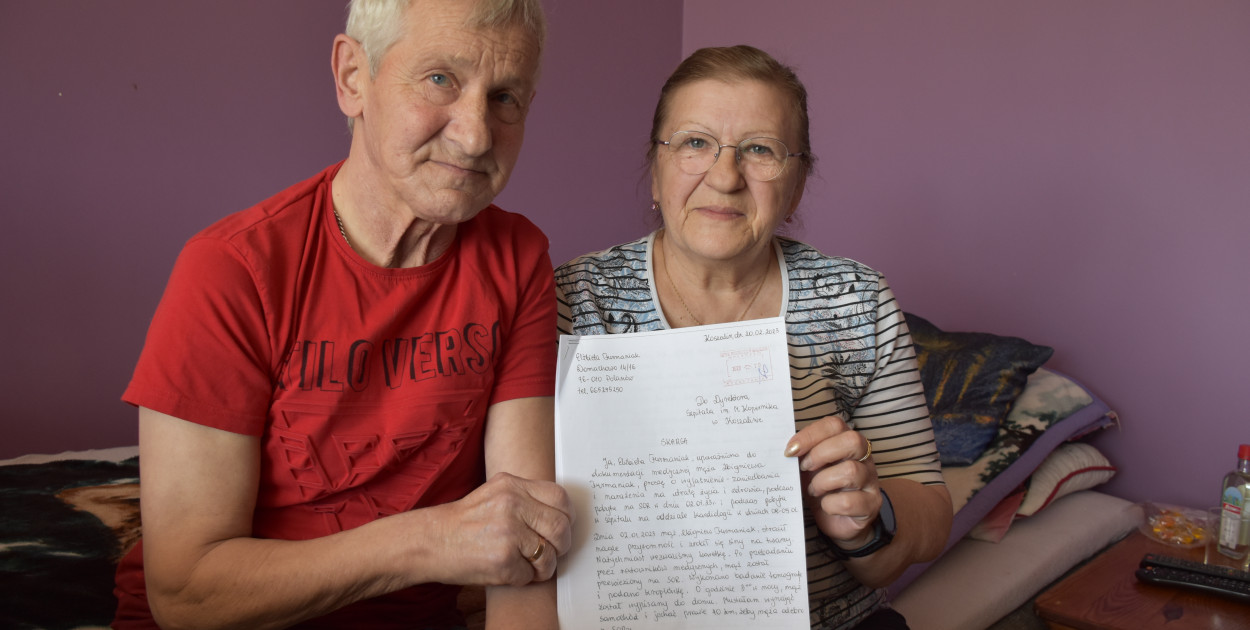 TILO VERSO
Koszalin, dn. 20.02.2023
Elżbieta Furmaniak
Domachowo 14/16
76-010 Polanów
Do Dyrektora
Szpitala im. M. Kopernika
w Koszalinie
SKARGA
Ja, Elżbieta Furmaniak, upoważniona do
dokumentacji medycznej męża Zbigniewa
Furmaniak, proszę o wyjaśnienie - zaniedbania
i narażenia na utratę życia i zdrowia, podczas
pobytu na SOR w dniu 02.01.23 i podczas pobytu
w szpitalu na oddziale kardiologii w dniach
Dnia 02.01.2023 mąż, Zbigniew Furmaniak, stracił
nagle przytomność i zrobił się siny na twarzy.
Natychmiast wezwaliśmy karetkę. Po przebadaniu
przez ratowników medycznych, mąż został
przewieziony na SOR. Wykonano badanie tomografii
i podano kroplówkę. O godzinie w nocy, mąż
został wypisany do domu. Musiałam wynająć
samochód i jechać prawie 40 km, żeby męża odebrać
z SORu.